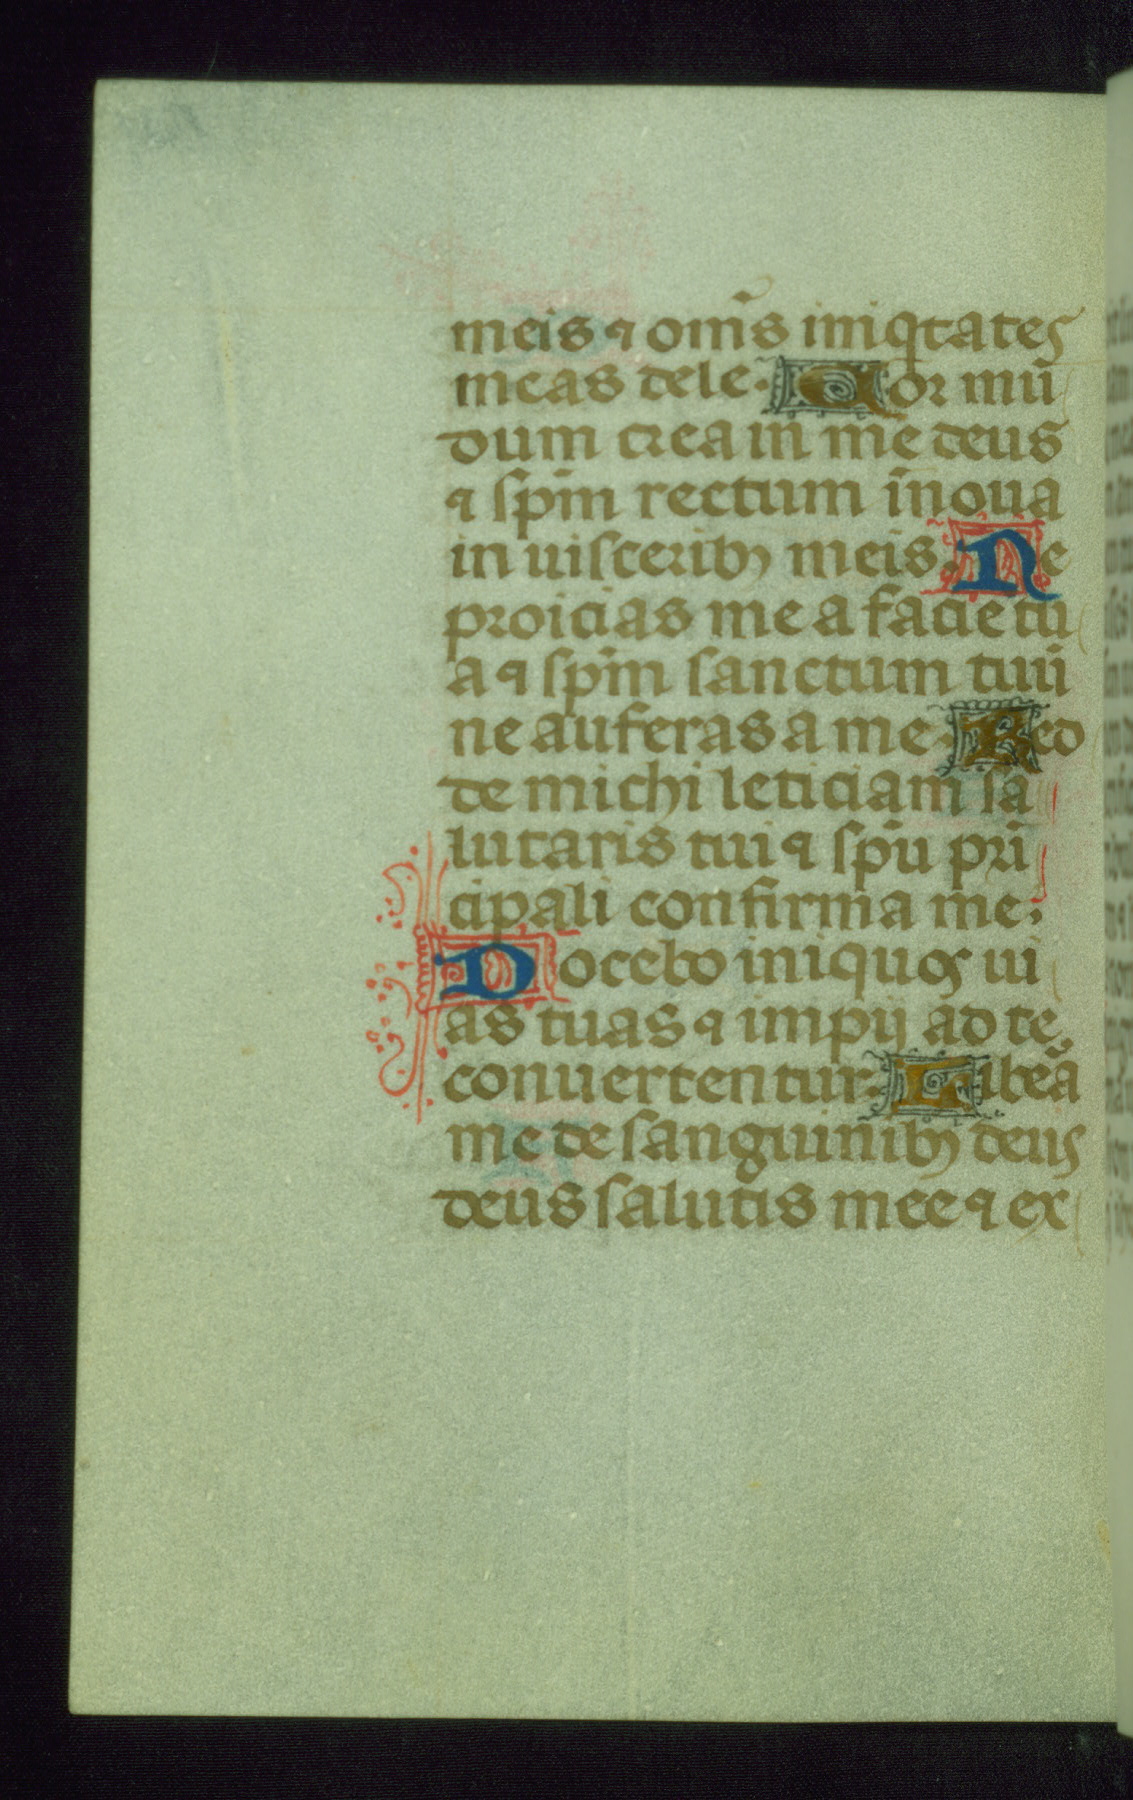 meis ⁊ om̅s iniq̇tates
meas dele. Cor mū
dum crea in me deus
⁊ sp̅m rectum īnoua
in uisceribꝫ meis. Ne
proicias me a facie tu
a ⁊ sp̅m sanctum tuū
ne auferas a me. Red
de michi leticiam sa
lutaris tui ⁊ sp̅u pri̅
cipali confirma me.
Docebo iniquos ui
as tuas ⁊ impij ad te
conuertentur. Libea̅
me de sanguinibꝫ deus
deus salutis mee ⁊ ex